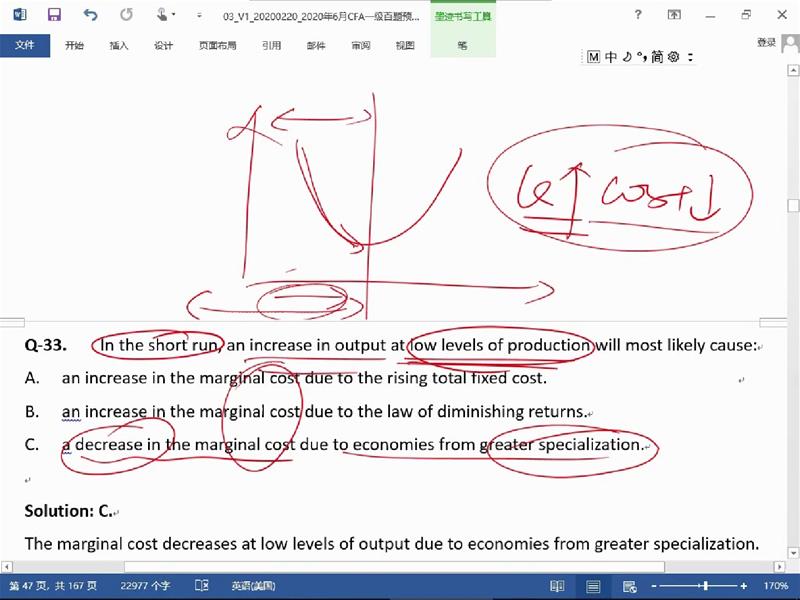 03_V1_20200220_2020年6月CFA一级百题预...
墨迹书写工具
文件 开始 插入 设计 页面布局 引用 邮件 审阅 视图 笔 登录
M 中 简
Q ↑ cost ↓
Q-33. In the short run, an increase in output at low levels of production will most likely cause:
A. an increase in the marginal cost due to the rising total fixed cost.
B. an increase in the marginal cost due to the law of diminishing returns.
C. a decrease in the marginal cost due to economies from greater specialization.
Solution: C.
The marginal cost decreases at low levels of output due to economies from greater specialization.
第 47 页，共 167 页 22977 个字 英语(美国) 170%